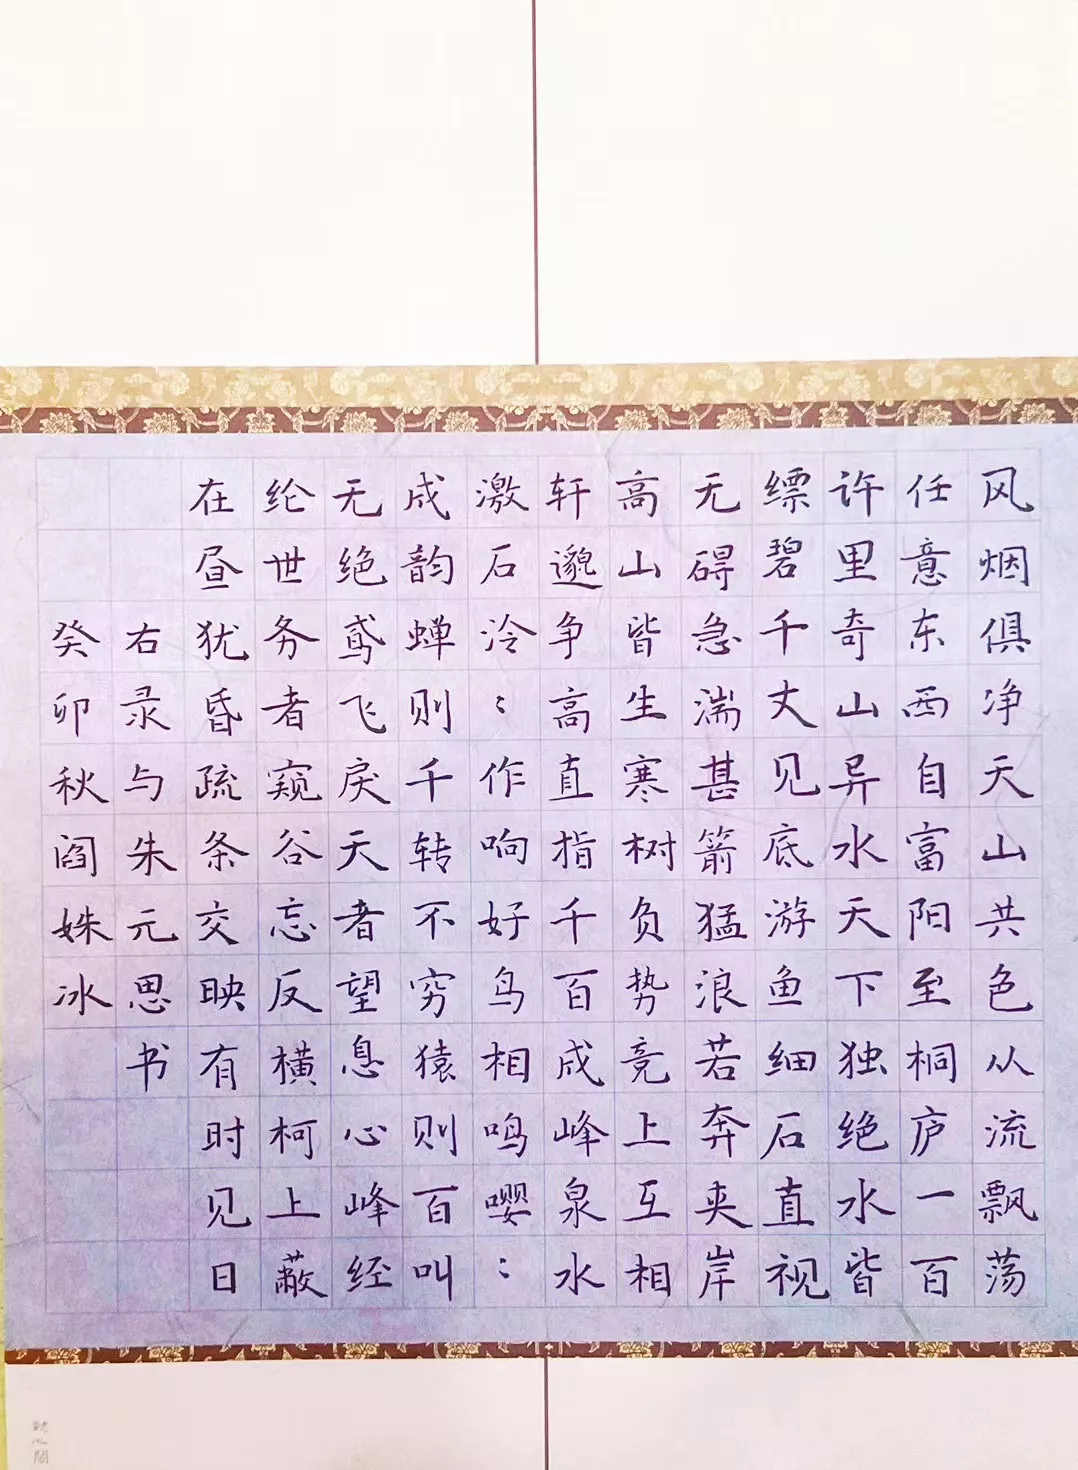 风烟俱净天山共色从流飘荡
任意东西自富阳至桐庐一百
许里奇山异水天下独绝水皆
缥碧千丈见底游鱼细石直视
无碍急湍甚箭猛浪若奔夹岸
高山皆生寒树负势竞上互相
轩邈争高直指千百成峰泉水
激石泠⺀作响好鸟相鸣嘤⺀
成韵蝉则千转不穷猿则百叫
无绝鸢飞戾天者望峰息心经
纶世务者窥谷忘反横柯上蔽
在昼犹昏疏条交映有时见日
右录与朱元思书
癸卯秋阎姝冰